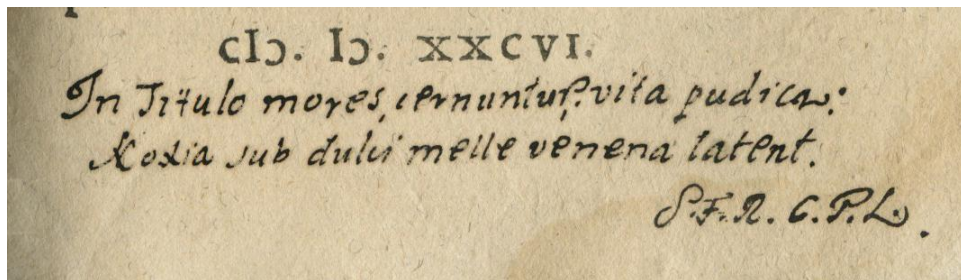 CIↃ. IↃ. XXCVI.
In Titulo mores, cernuntur, vita pudica:
Noxia sub dulci melle venena latent.
S.F.R.C.P.L.